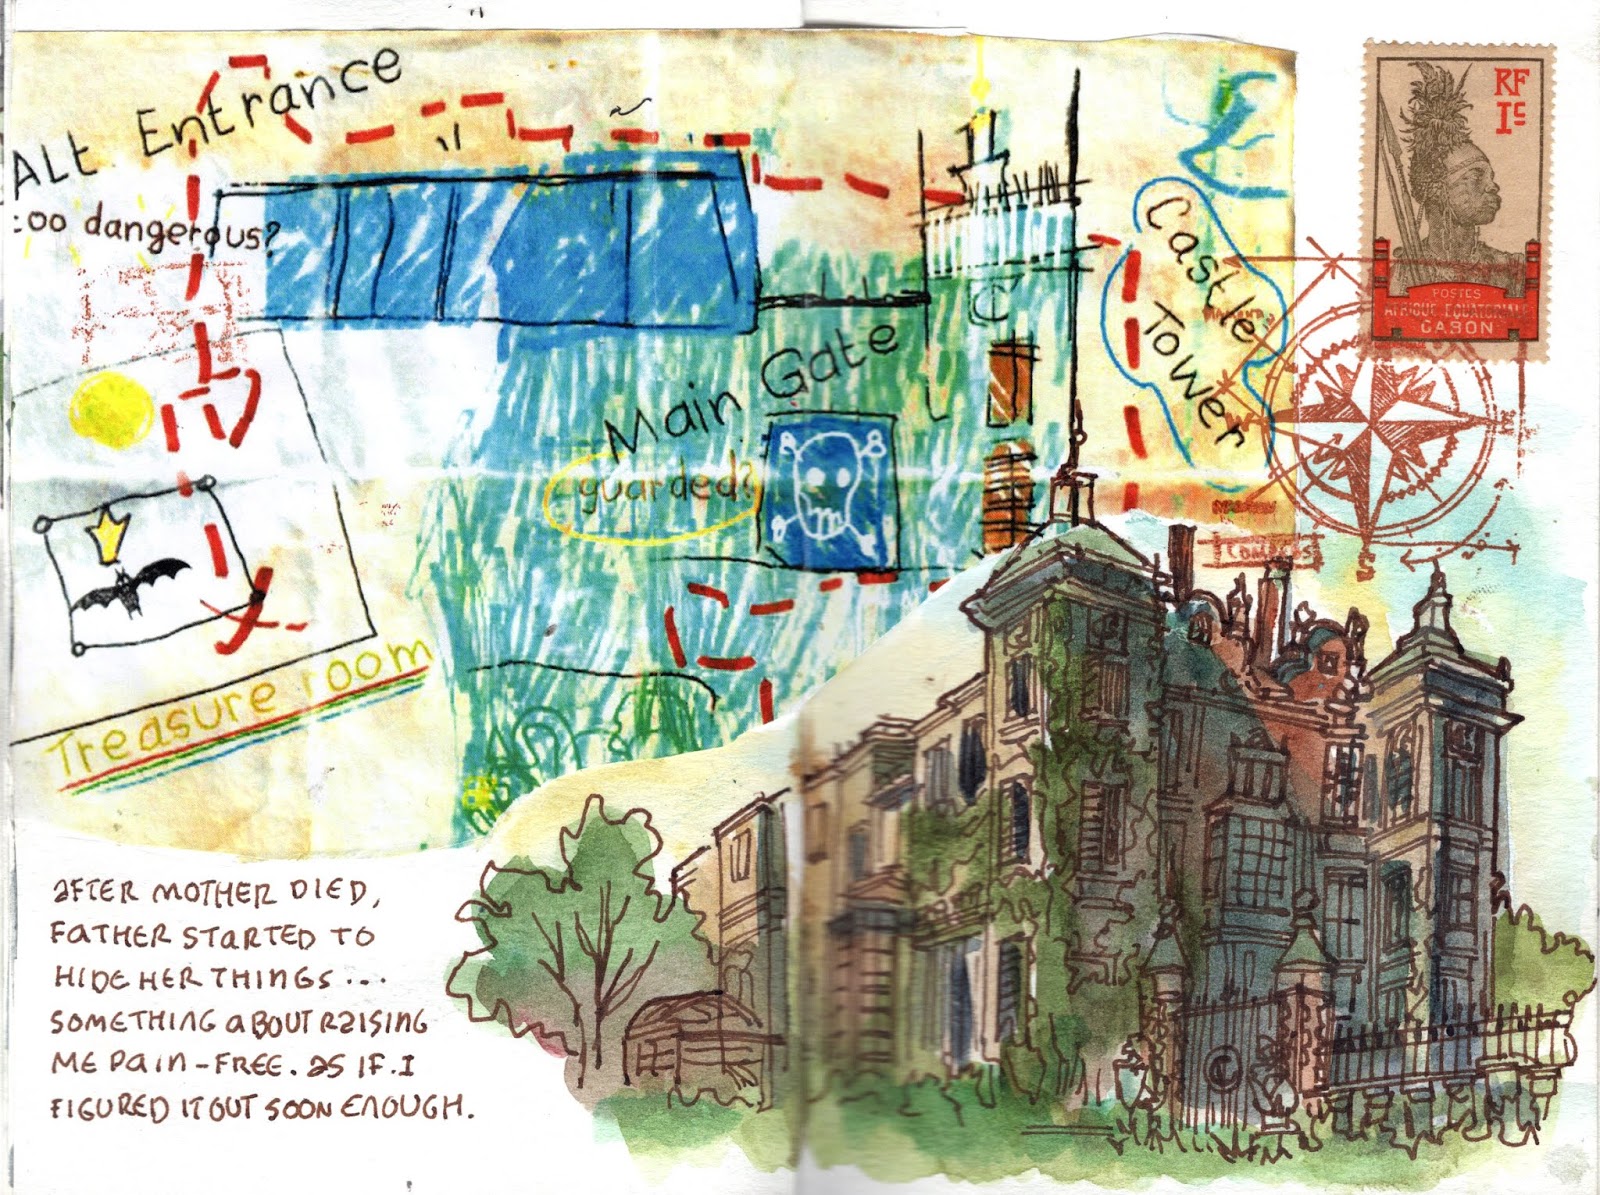 Alt Entrance
too dangerous?
Castle
Tower
Main Gate
guarded?
Treasure room
RF
1c
POSTES
AFRIQUE EQUATORIALE
GABON
AFTER MOTHER DIED,
FATHER STARTED TO
HIDE HER THINGS...
SOMETHING ABOUT RAISING
ME PAIN-FREE. AS IF. I
FIGURED IT OUT SOON ENOUGH.